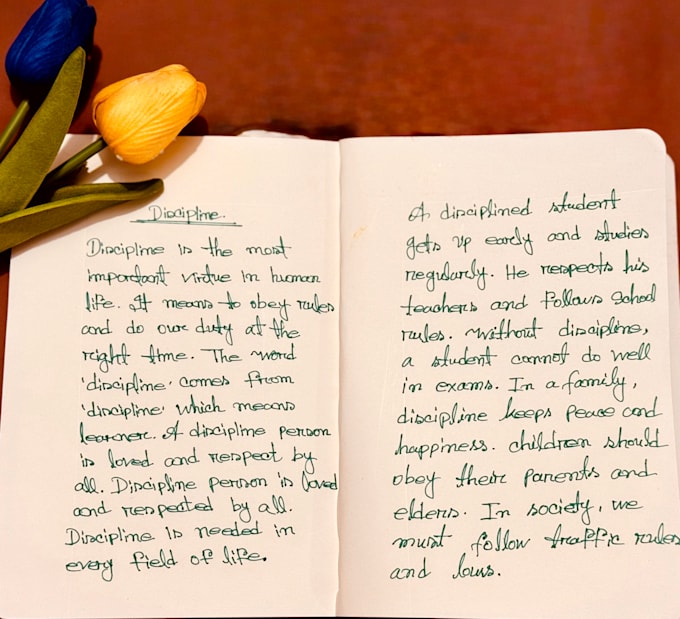 Discipline.
Discipline is the most
important virtue in human
life. It means to obey rules
and do our duty at the
right time. The word
'discipline' comes from
'discipline' which means
learner. A discipline person
is loved and respect by
all. Discipline person is loved
and respected by all.
Discipline is needed in
every field of life.
A disciplined student
gets up early and studies
regularly. He respects his
teachers and follows school
rules. Without discipline,
a student cannot do well
in exams. In a family,
discipline keeps peace and
happiness. children should
obey their parents and
elders. In society, we
must follow traffic rules
and laws.